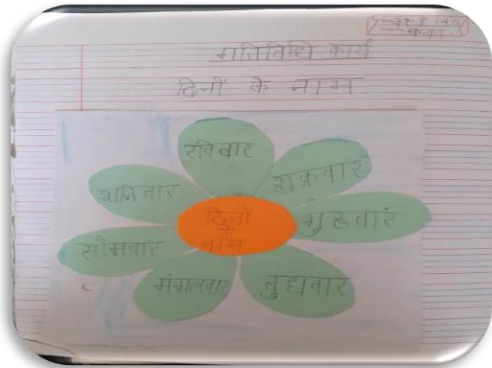 गतिविधि कार्य
दिनों के नाम
रविवार
शुक्रवार
गुरूवार
बुधवार
मंगलवार
सोमवार
शनिवार
दिनों
के
नाम